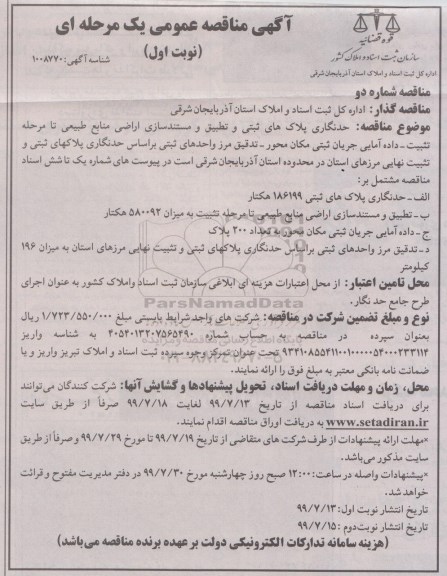 آگهی مناقصه عمومی یک مرحله ای
(نوبت اول)
شناسه آگهی: ۱۰۰۸۷۷۰
قوه قضائیه
سازمان ثبت اسناد و املاک کشور
اداره کل ثبت اسناد و املاک استان آذربایجان شرقی
مناقصه شماره دو
مناقصه گذار: اداره کل ثبت اسناد و املاک استان آذربایجان شرقی
موضوع مناقصه: حدنگاری پلاک های ثبتی و تطبیق و مستندسازی اراضی منابع طبیعی تا مرحله
تثبیت - داده آمایی جریان ثبتی مکان محور - تدقیق مرز واحدهای ثبتی براساس حدنگاری پلاکهای ثبتی و
تثبیت نهایی مرزهای استان در محدوده استان آذربایجان شرقی است در پیوست های شماره یک تا شش اسناد
مناقصه مشتمل بر:
الف - حدنگاری پلاک های ثبتی ۱۸۶۱۹۹ هکتار
ب - تطبیق و مستندسازی اراضی منابع طبیعی تا مرحله تثبیت به میزان ۵۸۰۰۹۲ هکتار
ج - داده آمایی جریان ثبتی مکان محور به تعداد ۲۰۰ پلاک
د - تدقیق مرز واحدهای ثبتی براساس حدنگاری پلاکهای ثبتی و تثبیت نهایی مرزهای استان به میزان ۱۹۶
کیلومتر
محل تامین اعتبار: از محل اعتبارات هزینه ای ابلاغی سازمان ثبت اسناد واملاک کشور به عنوان اجرای
طرح جامع حد نگار.
نوع و مبلغ تضمین شرکت در مناقصه: شرکت های واجد شرایط بایستی مبلغ ۱/۷۲۳/۵۵۰/۰۰۰ ریال
بعنوان سپرده در مناقصه به حساب شماره ۴۰۵۴۰۱۳۲۰۷۵۶۵۴۹۰ به شناسه واریز
۹۳۲۱۰۸۵۵۴۱۱۰۰۱۰۰۰۰۰۵۴۰۰۰۲۳۳۱۱۴ تحت عنوان تمرکز وجوه سپرده ثبت اسناد و املاک تبریز واریز و یا
ضمانت نامه بانکی معتبر به مبلغ فوق را ارائه نمایند.
محل، زمان و مهلت دریافت اسناد، تحویل پیشنهادها و گشایش آنها: شرکت کنندگان می‌توانند
برای دریافت اسناد مناقصه از تاریخ ۹۹/۷/۱۳ لغایت ۹۹/۷/۱۸ صرفاً از طریق سایت
www.setadiran.ir به دریافت اوراق مناقصه اقدام نمایند.
*مهلت ارائه پیشنهادات از طرف شرکت های متقاضی از تاریخ ۹۹/۷/۱۹ تا مورخ ۹۹/۷/۲۹ و صرفاً از طریق
سایت مذکور می‌باشد.
*پیشنهادات واصله در ساعت: ۱۲:۰۰ صبح روز چهارشنبه مورخ ۹۹/۷/۳۰ در دفتر مدیریت مفتوح و قرائت
خواهد شد.
تاریخ انتشار نوبت اول: ۹۹/۷/۱۳
تاریخ انتشار نوبت دوم: ۹۹/۷/۱۵
(هزینه سامانه تدارکات الکترونیکی دولت بر عهده برنده مناقصه می‌باشد)
ParsNamadData